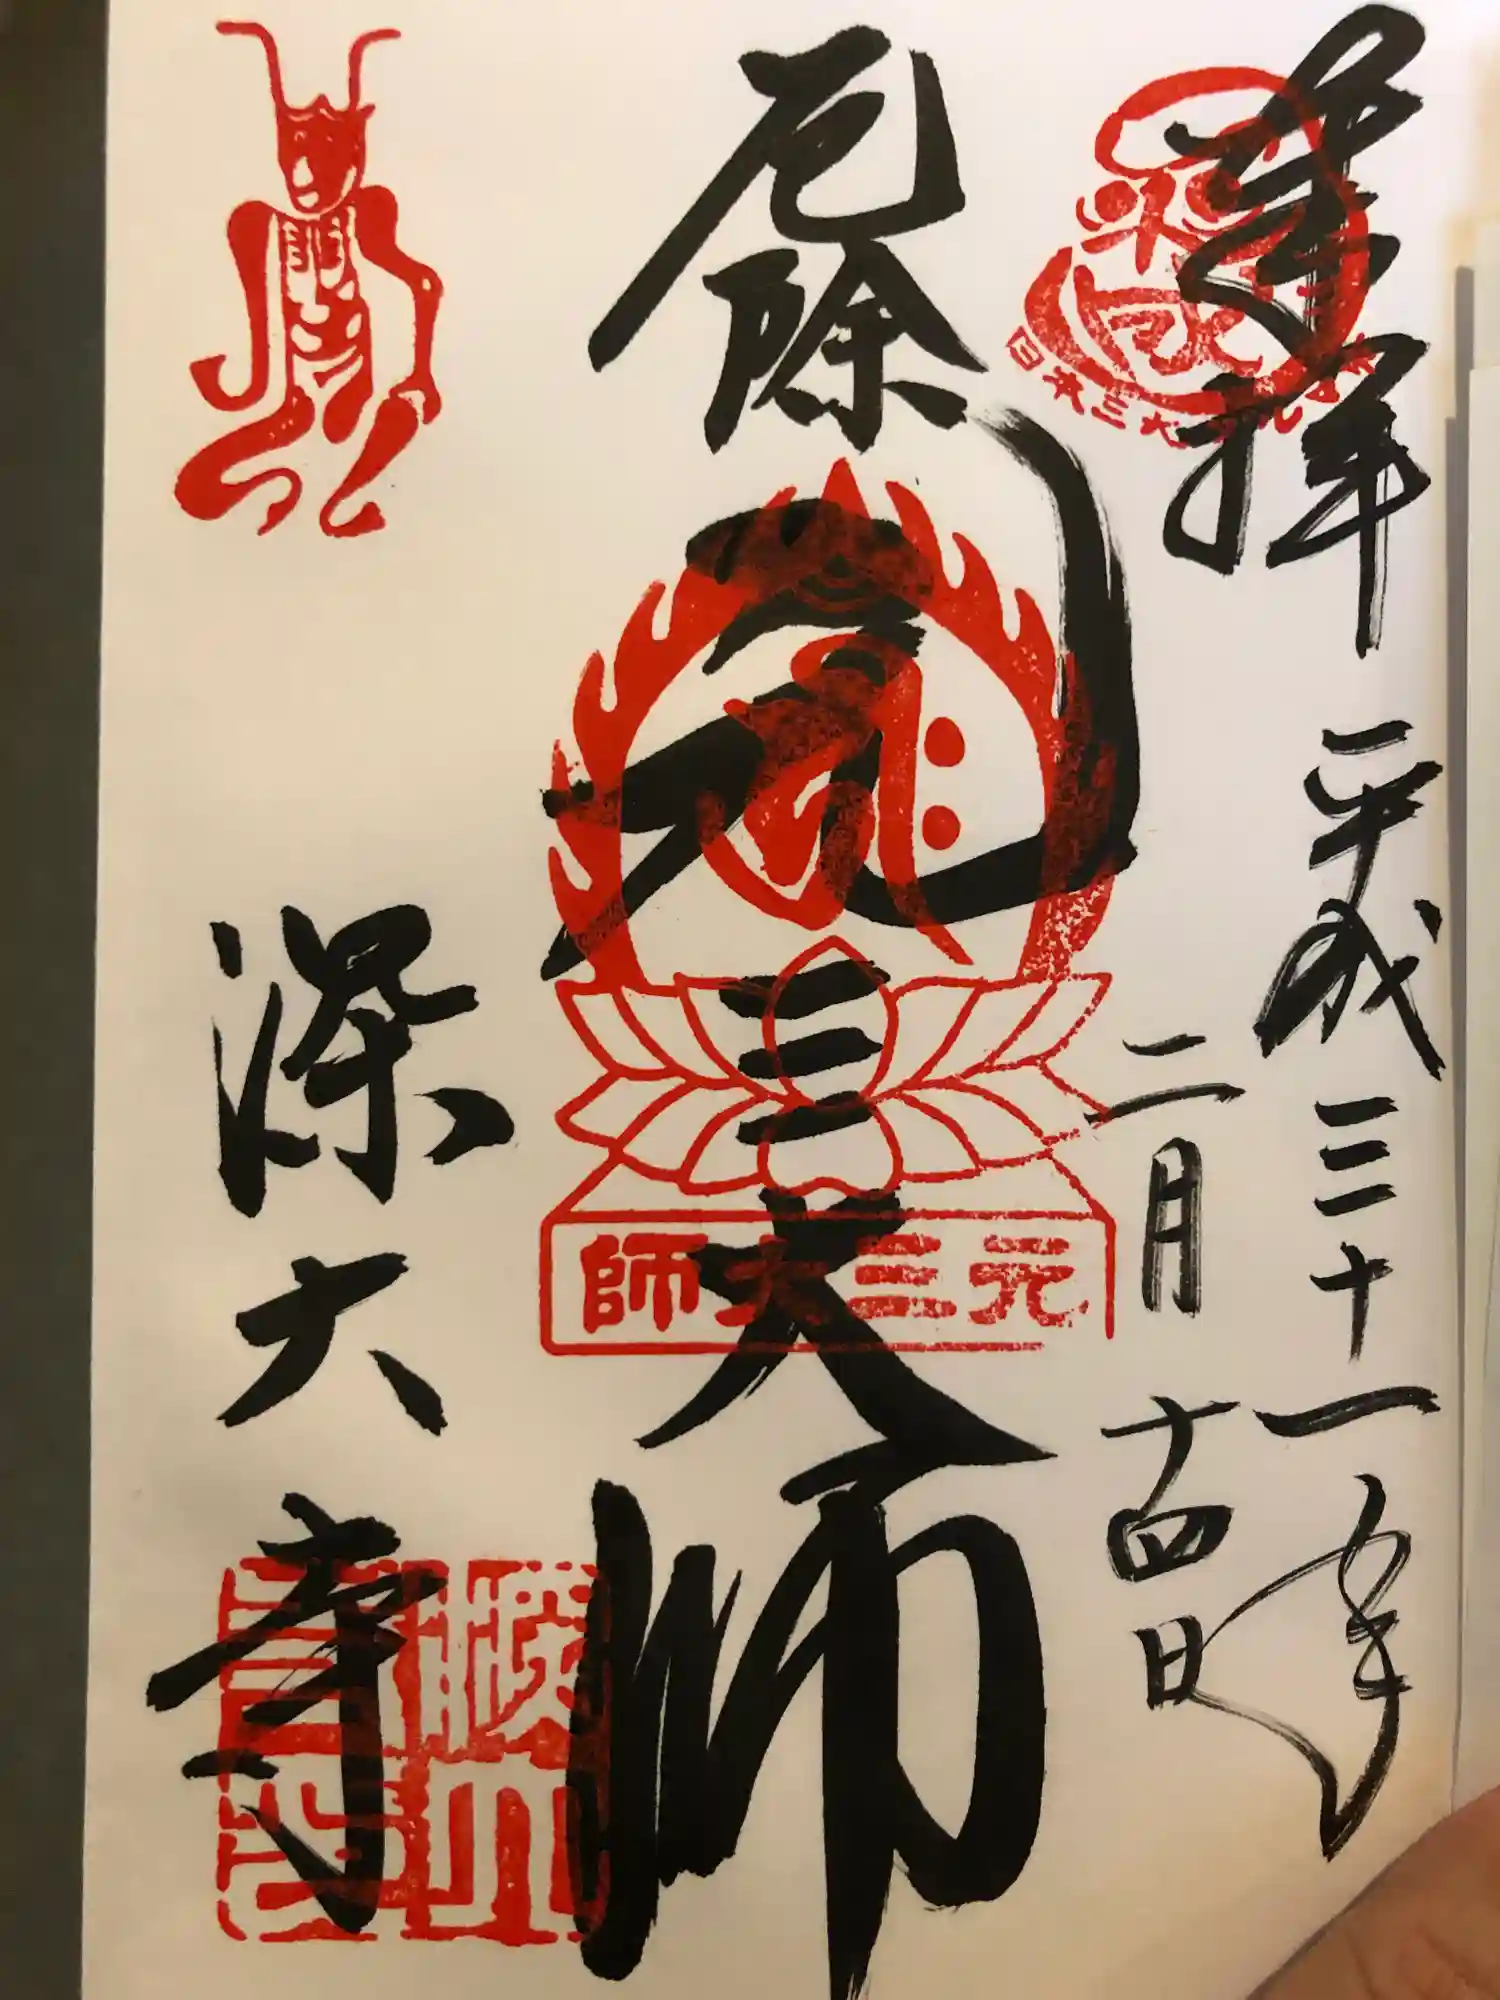 奉拝
平成三十一年
二月十四日
日本三大
厄除
元三大師
元三大師
深大寺